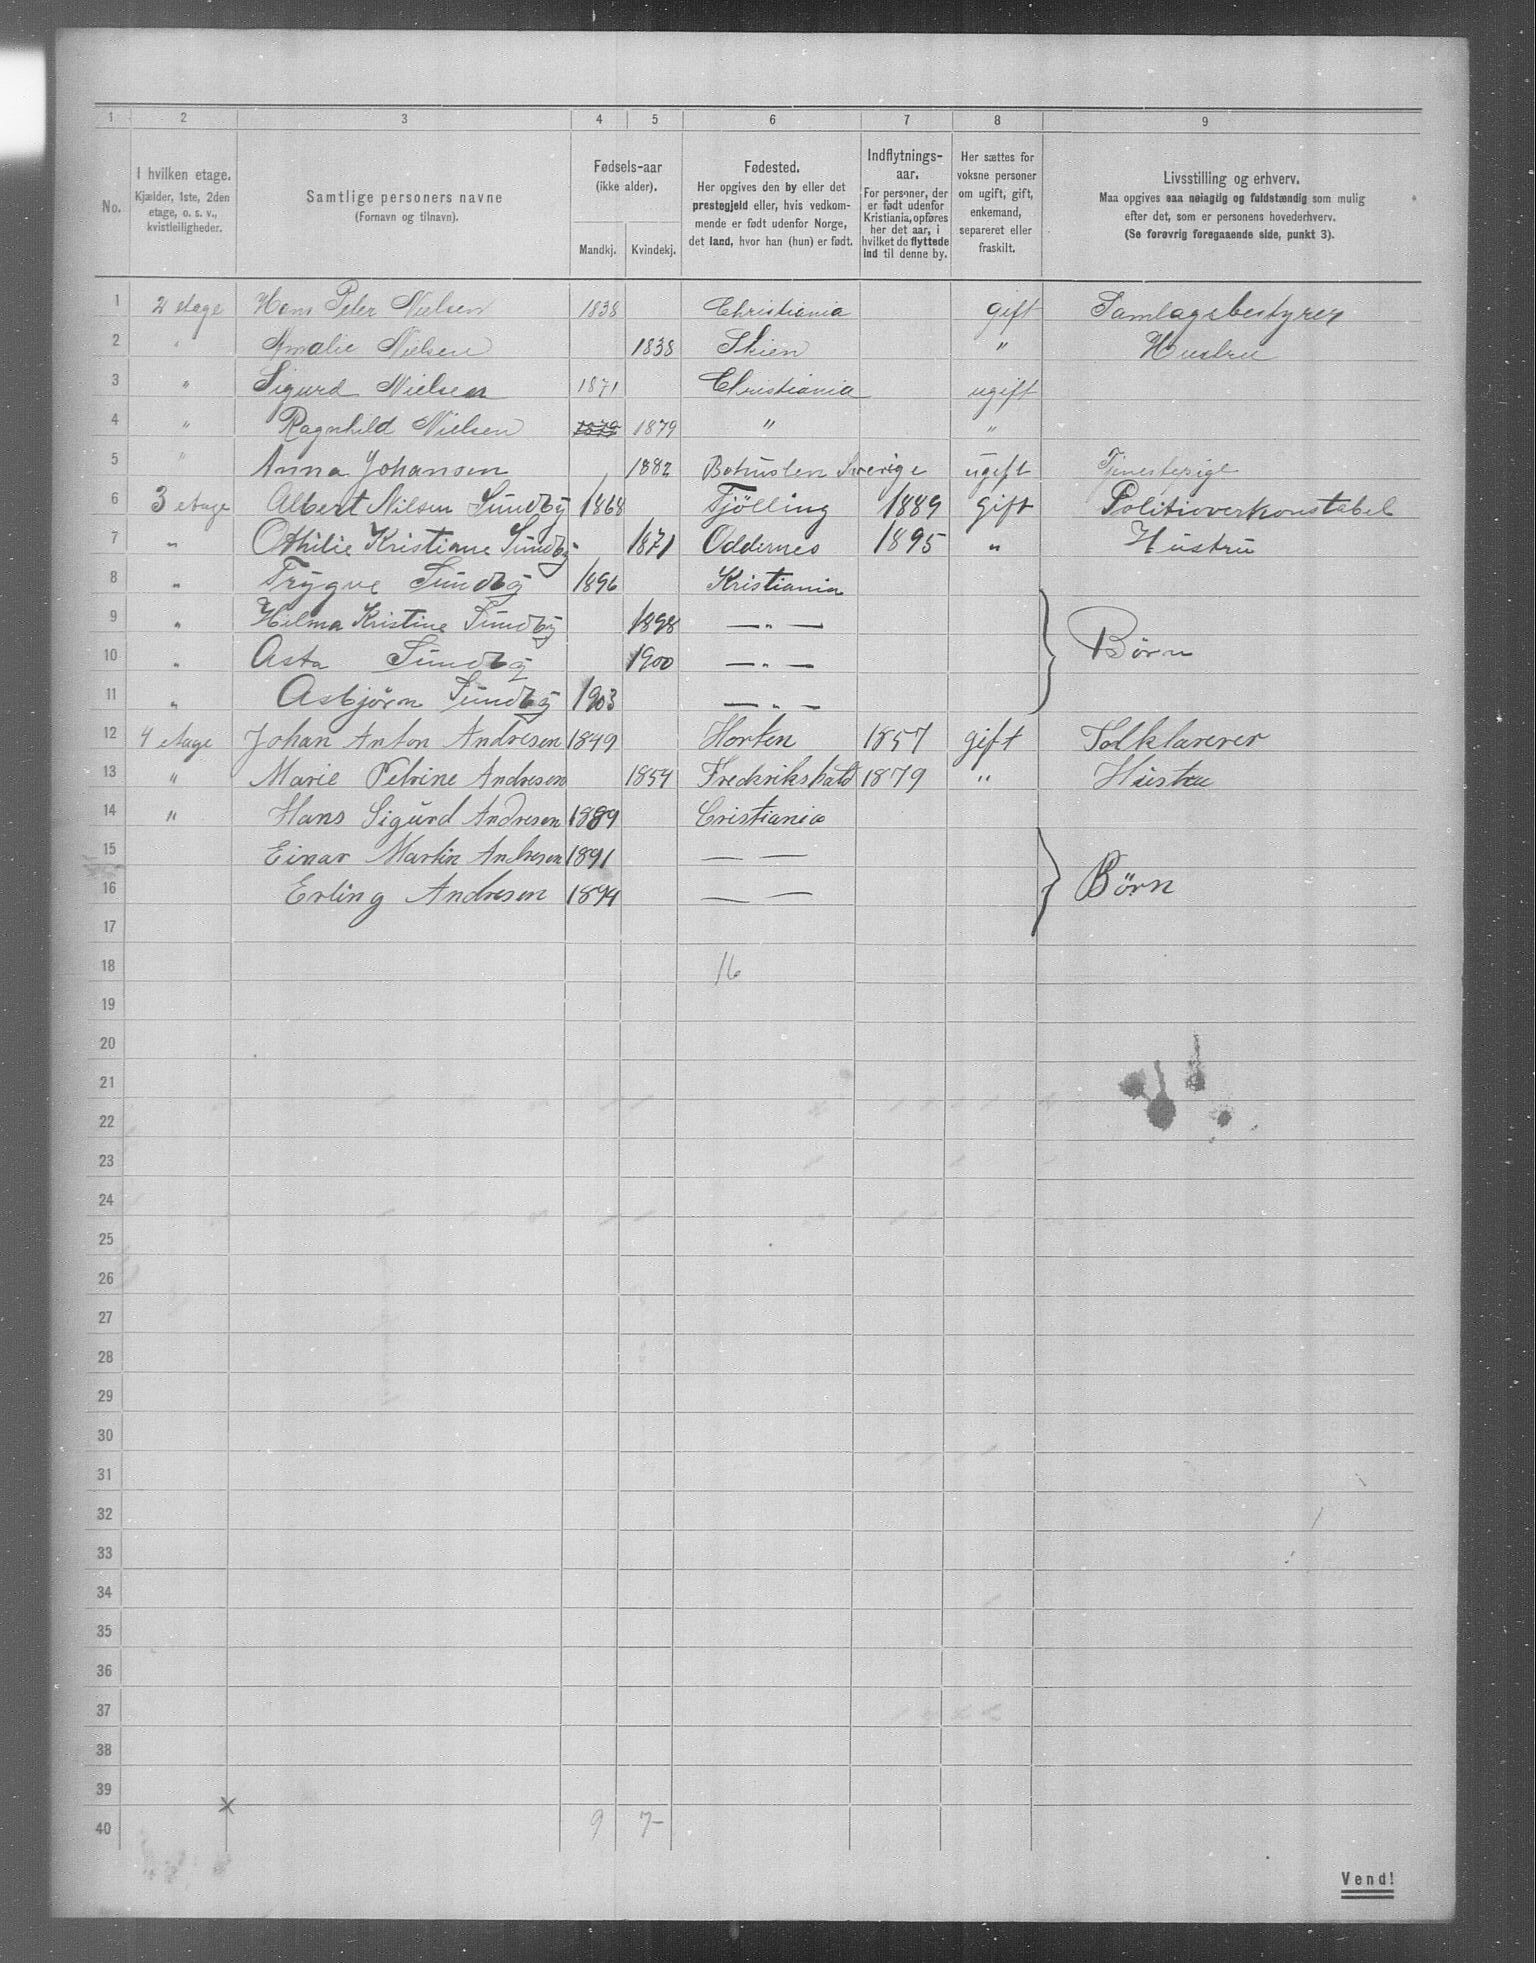 1 2 3 4 5 6 7 8 9
No.
I hvilken etage.
Kjælder, 1ste, 2den
etage, o. s. v.,
kvistleiligheder.
Samtlige personers navne
(Fornavn og tilnavn).
Fødsels-aar
(ikke alder).
Mandkj. Kvindekj.
Fødested.
Her opgives den by eller det
prestegjeld eller, hvis vedkom-
mende er født udenfor Norge,
det land, hvor han (hun) er født.
Indflytnings-
aar.
For personer, der
er født udenfor
Kristiania, opføres
her det aar, i
hvilket de flyttede
ind til denne by.
Her sættes for
voksne personer
om ugift, gift,
enkemand,
separeret eller
fraskilt.
Livsstilling og erhverv.
Maa opgives saa nøiagtig og fuldstændig som mulig
efter det, som er personens hovederhverv.
(Se forøvrig foregaaende side, punkt 3).
1 2 etage Hans Peter Nielsen 1838 Christiania gift Samlagsbestyrer
2 " Amalie Nielsen 1838 Skien " Hustru
3 " Sigurd Nielsen 1871 Christiania ugift
4 " Ragnhild Nielsen 1879 1879 " "
5 " Anna Johansen 1882 Bohuslen Sverige ugift Tjenestepige
6 3 etage Albert Nilsen Sundby 1868 Tjölling 1889 gift Politioverkonstabel
7 " Othilie Kristiane Sundby 1871 Oddernes 1895 " Hustru
8 " Trygve Sundby 1896 Kristiania
9 " Hilma Kristine Sundby 1898 — " —
10 " Asta Sundby 1900 — " — Børn
11 " Asbjørn Sundby 1903 — " —
12 4 etage Johan Anton Andresen 1849 Horten 1857 gift Tolklarerer
13 " Marie Petrine Andresen 1854 Fredrikshald 1879 " Hustru
14 " Hans Sigurd Andresen 1889 Cristiania
15 Einar Martin Andresen 1891 — —
16 Erling Andresen 1894 — — Børn
17
18 16
19
20
21
22
23
24
25
26
27
28
29
30
31
32
33
34
35
36
37
38
39
40 9 7-
Vend!